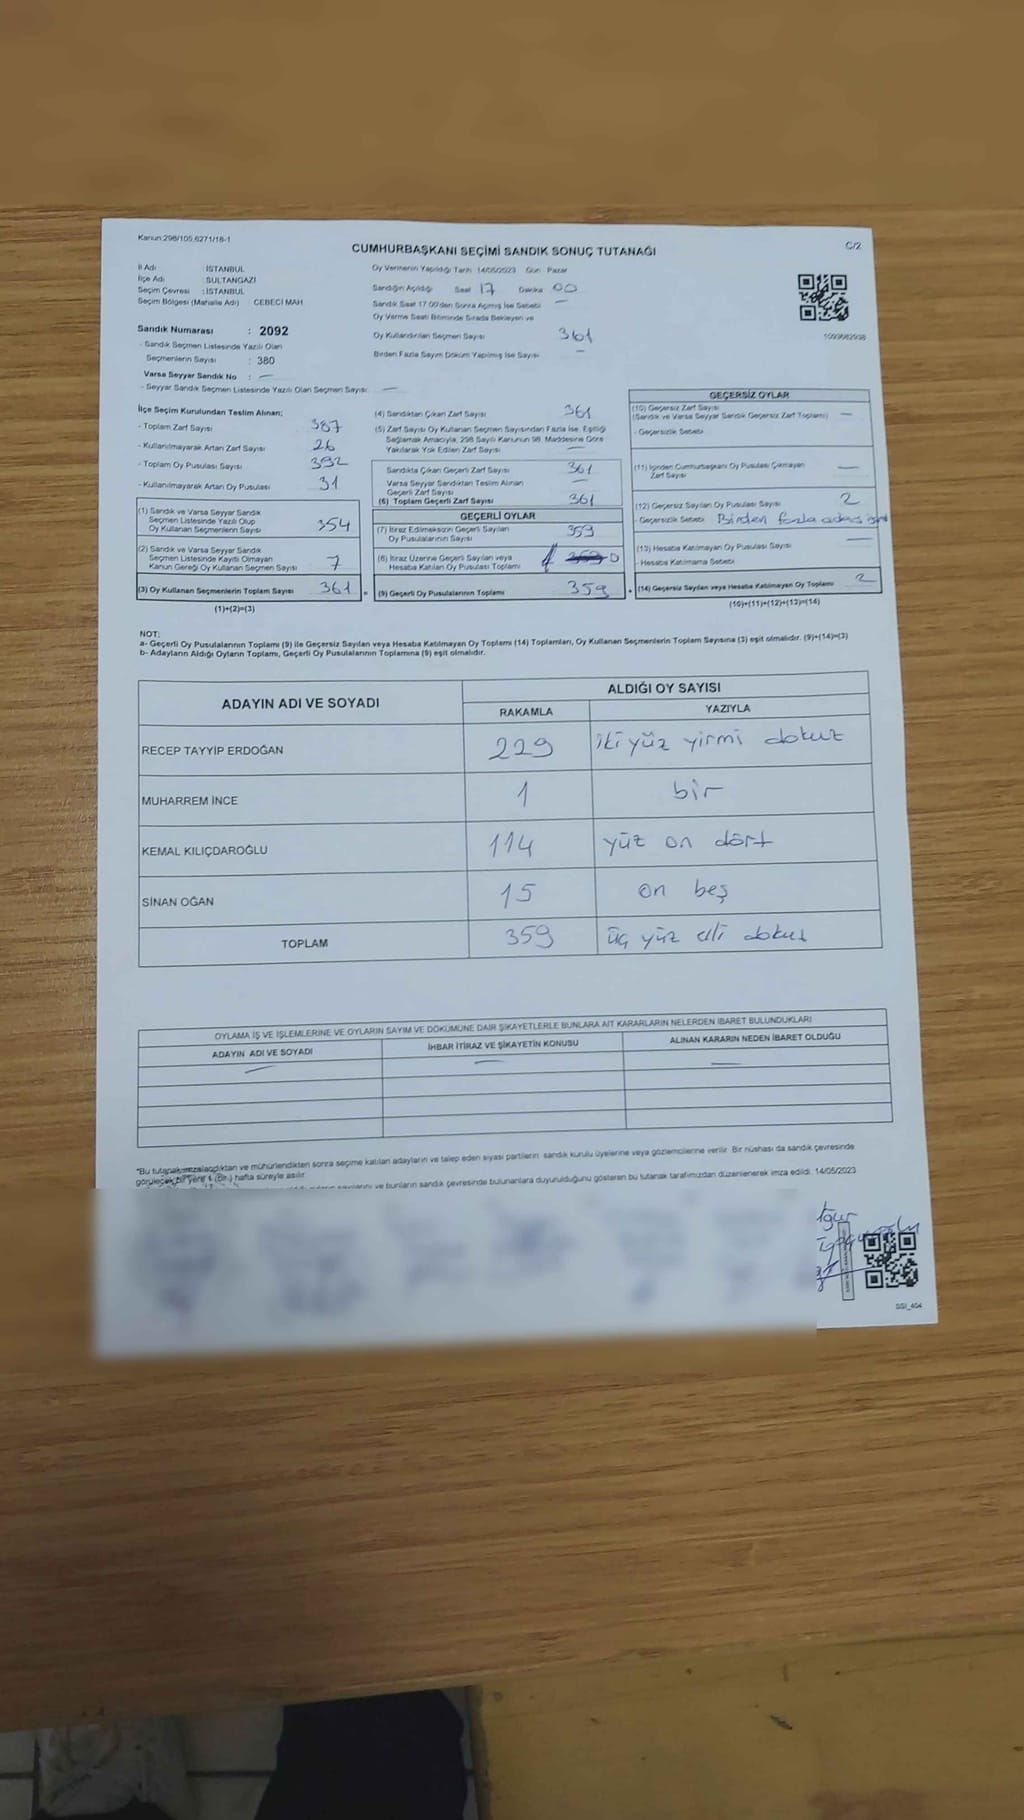 Kanun:298/105.6271/18-1
CUMHURBAŞKANI SEÇİMİ SANDIK SONUÇ TUTANAĞI
C/2
İl Adı İSTANBUL
İlçe Adı : SULTANGAZİ
Seçim Çevresi : İSTANBUL
Seçim Bölgesi (Mahalle Adı) CEBECİ MAH
Sandık Numarası : 2092
- Sandık Seçmen Listesinde Yazılı Olan
Seçmenlerin Sayısı : 380
Varsa Seyyar Sandık No : —
- Seyyar Sandık Seçmen Listesinde Yazılı Olan Seçmen Sayısı —
Oy Vermenin Yapıldığı Tarih 14/05/2023 Gün Pazar
Sandığın Açıldığı Saat 17 Dakika 00
Sandık Saat 17:00'den Sonra Açılmış İse Sebebi —
Oy Verme Saati Bitiminde Sırada Bekleyen ve
Oy Kullandırılan Seçmen Sayısı 361
Birden Fazla Sayım Döküm Yapılmış İse Sayısı —
İlçe Seçim Kurulundan Teslim Alınan;
- Toplam Zarf Sayısı 387
- Kullanılmayarak Artan Zarf Sayısı 26
- Toplam Oy Pusulası Sayısı 392
- Kullanılmayarak Artan Oy Pusulası 31
(1) Sandık ve Varsa Seyyar Sandık
Seçmen Listesinde Yazılı Olup
Oy Kullanan Seçmenlerin Sayısı 354
(2) Sandık ve Varsa Seyyar Sandık
Seçmen Listesinde Kayıtlı Olmayan
Kanun Gereği Oy Kullanan Seçmen Sayısı 7
(3) Oy Kullanan Seçmenlerin Toplam Sayısı 361 =
(1)+(2)=(3)
(4) Sandıktan Çıkan Zarf Sayısı 361
(5) Zarf Sayısı Oy Kullanan Seçmen Sayısından Fazla İse, Eşitliği
Sağlamak Amacıyla, 298 Sayılı Kanunun 98. Maddesine Göre
Yakılarak Yok Edilen Zarf Sayısı —
Sandıkta Çıkan Geçerli Zarf Sayısı 361
Varsa Seyyar Sandıktan Teslim Alınan
Geçerli Zarf Sayısı —
(6) Toplam Geçerli Zarf Sayısı 361
GEÇERLİ OYLAR
(7) İtiraz Edilmeksizin Geçerli Sayılan
Oy Pusulalarının Sayısı 359
(8) İtiraz Üzerine Geçerli Sayılan veya
Hesaba Katılan Oy Pusulası Toplamı 0
(9) Geçerli Oy Pusulalarının Toplamı 359 +
GEÇERSİZ OYLAR
(10) Geçersiz Zarf Sayısı
(Sandık ve Varsa Seyyar Sandık Geçersiz Zarf Toplamı) —
- Geçersizlik Sebebi
(11) İçinden Cumhurbaşkanı Oy Pusulası Çıkmayan
Zarf Sayısı —
(12) Geçersiz Sayılan Oy Pusulası Sayısı 2
- Geçersizlik Sebebi Birden fazla adaya
(13) Hesaba Katılmayan Oy Pusulası Sayısı —
- Hesaba Katılmama Sebebi
(14) Geçersiz Sayılan veya Hesaba Katılmayan Oy Toplamı 2
(10)+(11)+(12)+(13)=(14)
NOT:
a- Geçerli Oy Pusulalarının Toplamı (9) ile Geçersiz Sayılan veya Hesaba Katılmayan Oy Toplamı (14) Toplamları, Oy Kullanan Seçmenlerin Toplam Sayısına (3) eşit olmalıdır. (9)+(14)=(3)
b- Adayların Aldığı Oyların Toplamı, Geçerli Oy Pusulalarının Toplamına (9) eşit olmalıdır.
ADAYIN ADI VE SOYADI
ALDIĞI OY SAYISI
RAKAMLA YAZIYLA
RECEP TAYYİP ERDOĞAN 229 iki yüz yirmi dokuz
MUHARREM İNCE 1 bir
KEMAL KILIÇDAROĞLU 114 yüz on dört
SİNAN OĞAN 15 on beş
TOPLAM 359 üç yüz elli dokuz
OYLAMA İŞ VE İŞLEMLERİNE VE OYLARIN SAYIM VE DÖKÜMÜNE DAİR ŞİKAYETLERLE BUNLARA AİT KARARLARIN NELERDEN İBARET BULUNDUKLARI
ADAYIN ADI VE SOYADI İHBAR İTİRAZ VE ŞİKAYETİN KONUSU ALINAN KARARIN NEDEN İBARET OLDUĞU
— — —
"Bu tutanak imzalandıktan ve mühürlendikten sonra seçime katılan adayların ve talep eden siyasi partilerin sandık kurulu üyelerine veya gözlemcilerine verilir. Bir nüshası da sandık çevresinde
görülecek bir yere 1 (Bir) hafta süreyle asılır
ve bunların sandık çevresinde bulunanlara duyurulduğunu gösteren bu tutanak tarafımızdan düzenlenerek imza edildi. 14/05/2023